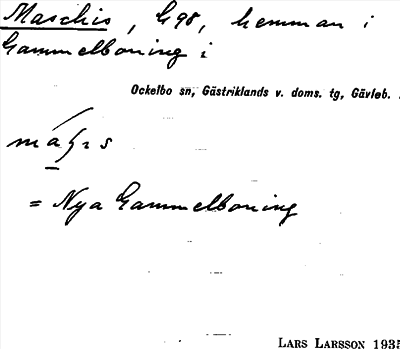 Maschis, G98, hemman i
Gammelboning i
Ockelbo sn, Gästriklands v. doms. tg, Gävleb.
= Nya Gammelboning
LARS LARSSON 1935